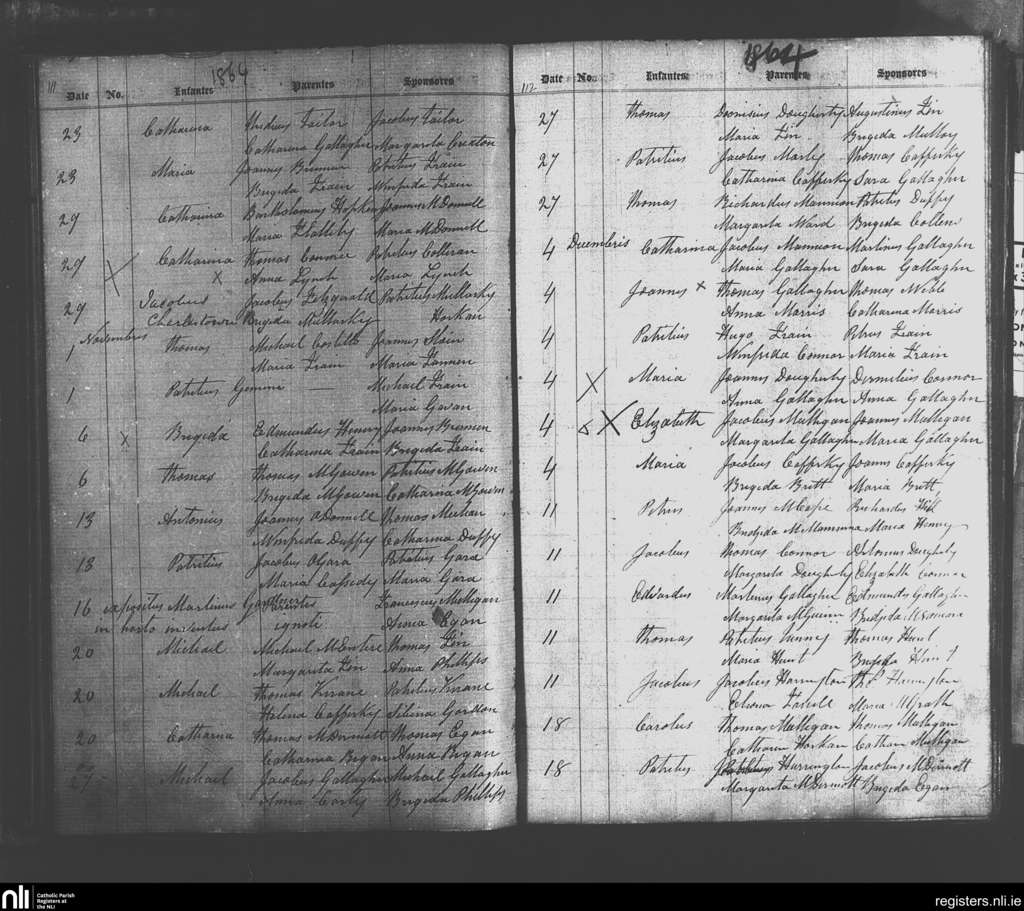 111
1864
Date No. Infantes Parentes Sponsores
23 Catharina Andreas Tailor Jacobus Tailor
Catharina Gallagher Margarita Cruxton
23 Maria Joannes Brennan
Brigida Winfrida
29 Catharina Bartholomeus Hopkins Joannes McDonnell
Maria Maria McDonnell
29 Catharina Thomas Connor Patritius
Anna Lynch Maria Lynch
29 Jacobus Jacobus Fitzgerald Patritius Mullarky
Charlestown Brigida Mullarkey Horkan
Novembris
1 Thomas Michael Costillo Joannes
Maria Maria
1 Patritius Gemini Michael
Maria Gavan
6 x Brigida Edmundus Henry Joannes Brennan
Catharina Brigida
6 Thomas Thomas McGowen Patritius McGowen
Brigida McGowen Catharina McGowen
13 Antonius Joannes O'Donnell Thomas Meehan
Winfrida Duffy Catharina Duffy
13 Patritius Jacobus OGara Patritius Gara
Maria Cassidy Maria Gara
16 expositus Martinus Gardiner Parentes Franciscus Mulligan
in horto inventus ignoti Anna Egan
20 Michael Michael McEntire Thomas
Margarita Anna Phillips
20 Michael Thomas Kirane Patritius Kirane
Helena Cafferky Silina Gordon
20 Catharina Thomas McDermott Thomas Egan
Catharina Regan Anna Regan
27 Michael Jacobus Gallagher Michael Gallagher
Anna Brigida Phillips
112
1864
Date No. Infantes Parentes Sponsores
27 Thomas Dionisius Dougherty Augustinus
Maria Brigida Mulloy
27 Patritius Jacobus Marly Thomas Cafferky
Catharina Cafferky Sara Gallagher
27 Thomas Richardus Mannion Patritius Duffy
Margarita Ward Brigida
4 Decembris Catharina Jacobus Mannion Martinus Gallagher
Maria Gallagher Sara Gallagher
4 Joannes x Thomas Gallagher Thomas
Anna Morris Catharina Morris
4 Patritius Hugo Petrus
Winfrida Connor Maria
4 X Maria Joannes Dougherty Dermitius Connor
Anna Gallagher Anna Gallagher
4 X Elizabeth Jacobus Mulligan Joannes Mulligan
Margarita Gallagher Maria Gallagher
4 Maria Jacobus Cafferky Joannes Cafferky
Brigida Britt Maria Britt
11 Petrus Joannes McCafe Richardus
Bridgida McManmna Maria Henry
11 Jacobus Thomas Connor Antonius Dougherty
Margarita Dougherty Elizabeth Connor
11 Edvardus Martinus Gallagher Edmundus Gallagher
Margarita Bridgida
11 Thomas Patritius Thomas Hunt
Maria Hunt Brigida Hunt
11 Jacobus Jacobus Harrington Thos Harrington
Maria McGrath
18 Carolus Thomas Mulligan Thomas Mulligan
Catharin Horkan Catharn Mulligan
18 Patritius Harrington Jacobus McDermott
Margarita McDermott Brigida Egan
nli Catholic Parish
Registers at
the NLI
registers.nli.ie